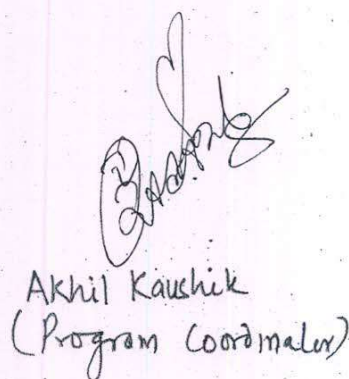 Akhil Kaushik
(Program Coordinator)